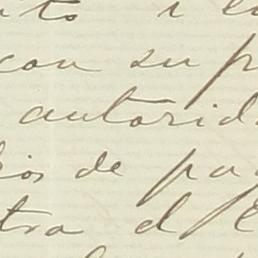 con su p
autorid
ios de pa
tra el E